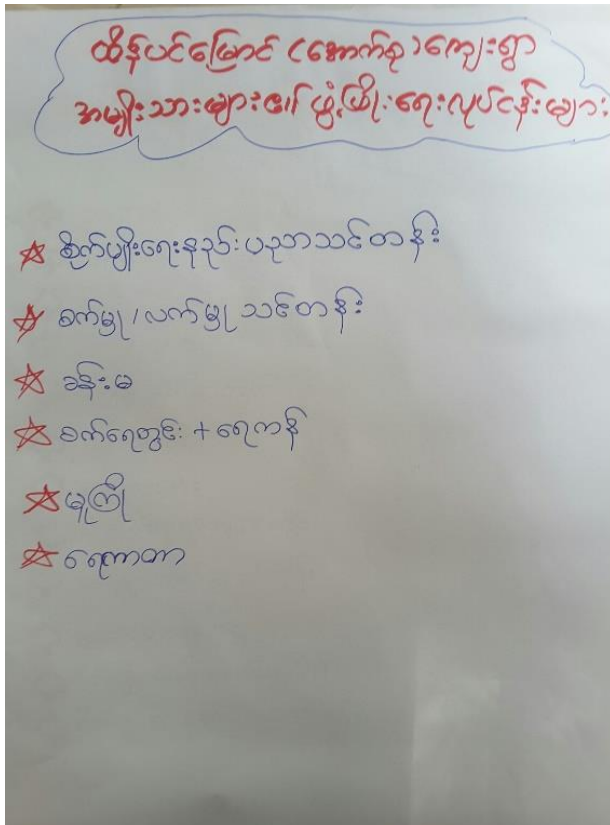 ထိန်ပင်မြောင် (အောက်စု) ကျေးရွာ
အမျိုးသားများ၏ ဖွံ့ဖြိုးရေးလုပ်ငန်းများ
စိုက်ပျိုးရေးနည်းပညာသင်တန်း
စက်မှု / လက်မှု သင်တန်း
ခန်းမ
စက်ရေတွင်း + ရေကန်
မူကြို
ရေကာတာ